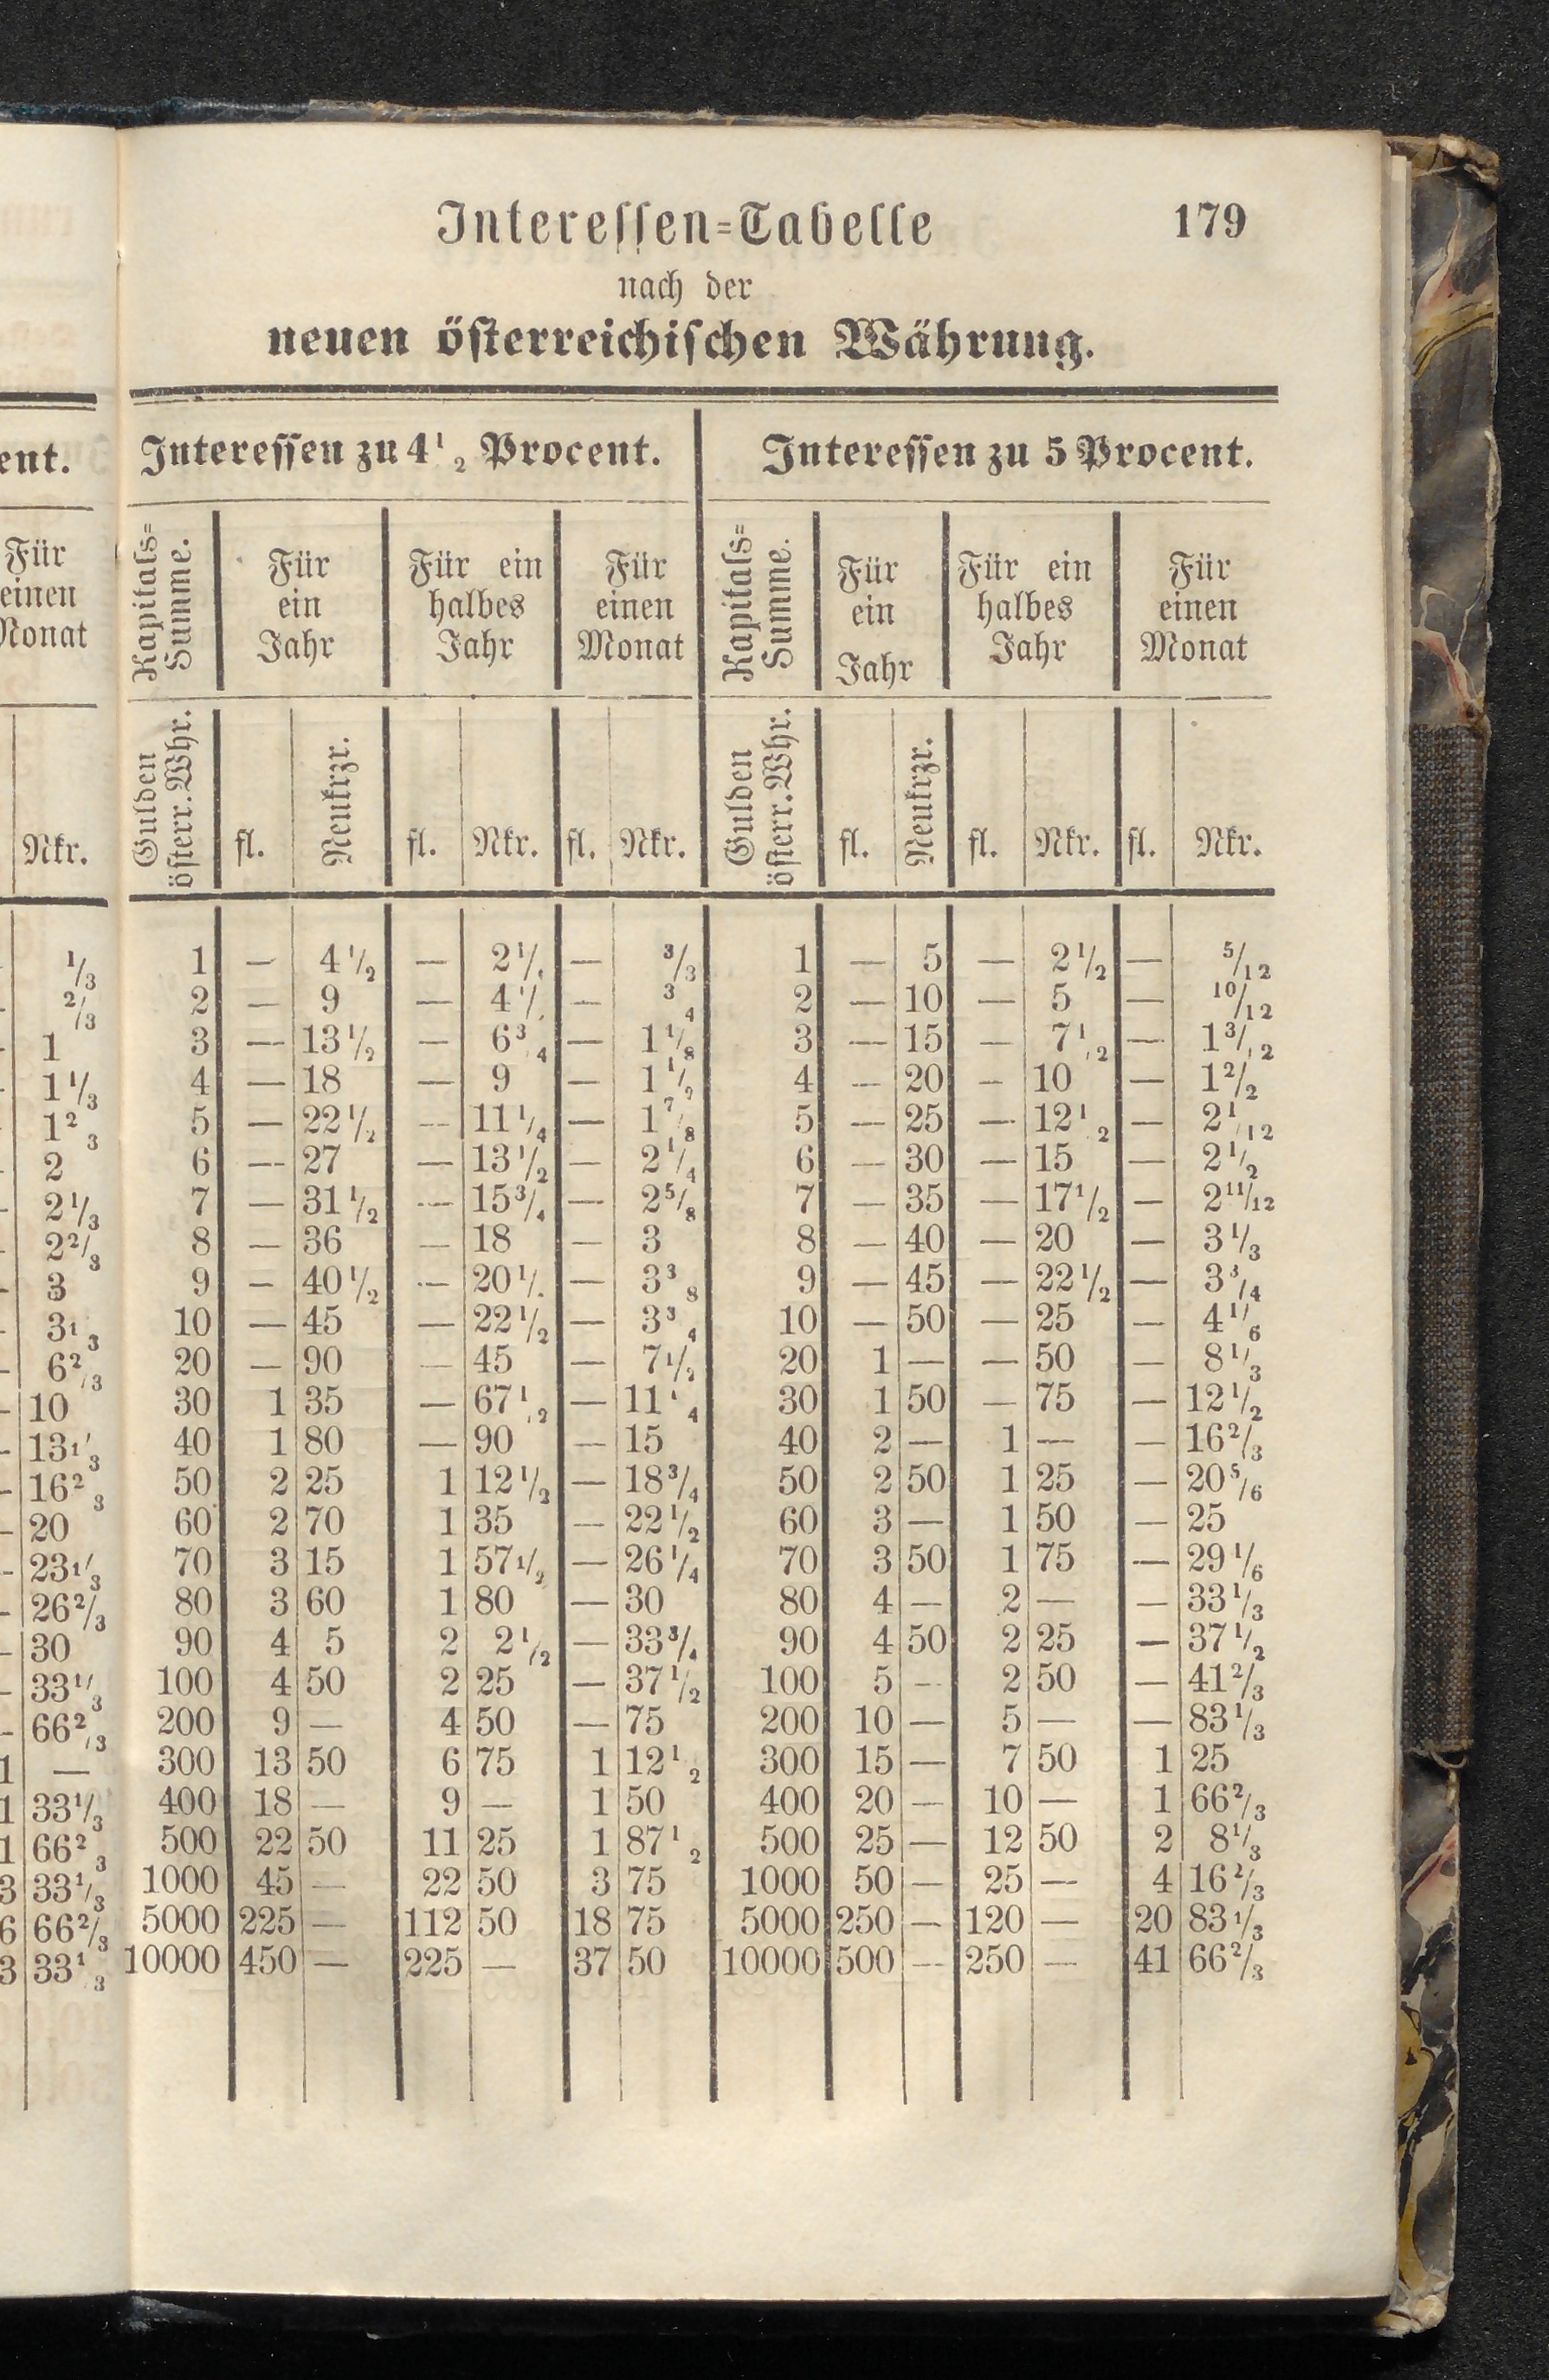 Interessen=Tabelle 179
nach der
neuen österreichischen Währung.
ent. Interessen zu 4 1/2 Procent. Interessen zu 5 Procent.
Für einen Monat Kapitals=Summe. Für ein Jahr Für ein halbes Jahr Für einen Monat Kapitals=Summe. Für ein Jahr Für ein halbes Jahr Für einen Monat
Nkr. Gulden österr. Whr. fl. Neukrzr. fl. Nkr. fl. Nkr. Gulden österr. Whr. fl. Neukrzr. fl. Nkr. fl. Nkr.
1/3 1 — 4 1/2 — 2 1/ — 3/3 1 — 5 — 2 1/2 — 5/12
2/3 2 — 9 — 4 1/ — 3/4 2 — 10 — 5 — 10/12
1 3 — 13 1/2 — 6 3/4 — 1 1/8 3 — 15 — 7 1/2 — 1 3/12
1 1/3 4 — 18 — 9 — 1 1/2 4 — 20 — 10 — 1 2/2
1 2/3 5 — 22 1/2 — 11 1/4 — 1 7/8 5 — 25 — 12 1/2 — 2 1/12
2 6 — 27 — 13 1/2 — 2 1/4 6 — 30 — 15 — 2 1/2
2 1/3 7 — 31 1/2 — 15 3/4 — 2 5/8 7 — 35 — 17 1/2 — 2 11/12
2 2/3 8 — 36 — 18 — 3 8 — 40 — 20 — 3 1/3
3 9 — 40 1/2 — 20 1/ — 3 3/8 9 — 45 — 22 1/2 — 3 3/4
3 1/3 10 — 45 — 22 1/2 — 3 3/4 10 — 50 — 25 — 4 1/6
6 2/3 20 — 90 — 45 — 7 1/2 20 1 — — 50 — 8 1/3
10 30 1 35 — 67 1/2 — 11 1/4 30 1 50 — 75 — 12 1/2
13 1/3 40 1 80 — 90 — 15 40 2 — 1 — — 16 2/3
16 2/3 50 2 25 1 12 1/2 — 18 3/4 50 2 50 1 25 — 20 5/6
20 60 2 70 1 35 — 22 1/2 60 3 — 1 50 — 25
23 1/3 70 3 15 1 57 1/2 — 26 1/4 70 3 50 1 75 — 29 1/6
26 2/3 80 3 60 1 80 — 30 80 4 — 2 — — 33 1/3
30 90 4 5 2 2 1/2 — 33 3/4 90 4 50 2 25 — 37 1/2
33 1/3 100 4 50 2 25 — 37 1/2 100 5 — 2 50 — 41 2/3
66 2/3 200 9 — 4 50 — 75 200 10 — 5 — — 83 1/3
1 — 300 13 50 6 75 1 12 1/2 300 15 — 7 50 1 25
1 33 1/3 400 18 — 9 — 1 50 400 20 — 10 — 1 66 2/3
1 66 2/3 500 22 50 11 25 1 87 1/2 500 25 — 12 50 2 8 1/3
3 33 1/3 1000 45 — 22 50 3 75 1000 50 — 25 — 4 16 2/3
6 66 2/3 5000 225 — 112 50 18 75 5000 250 — 120 — 20 83 1/3
3 33 1/3 10000 450 — 225 — 37 50 10000 500 — 250 — 41 66 2/3